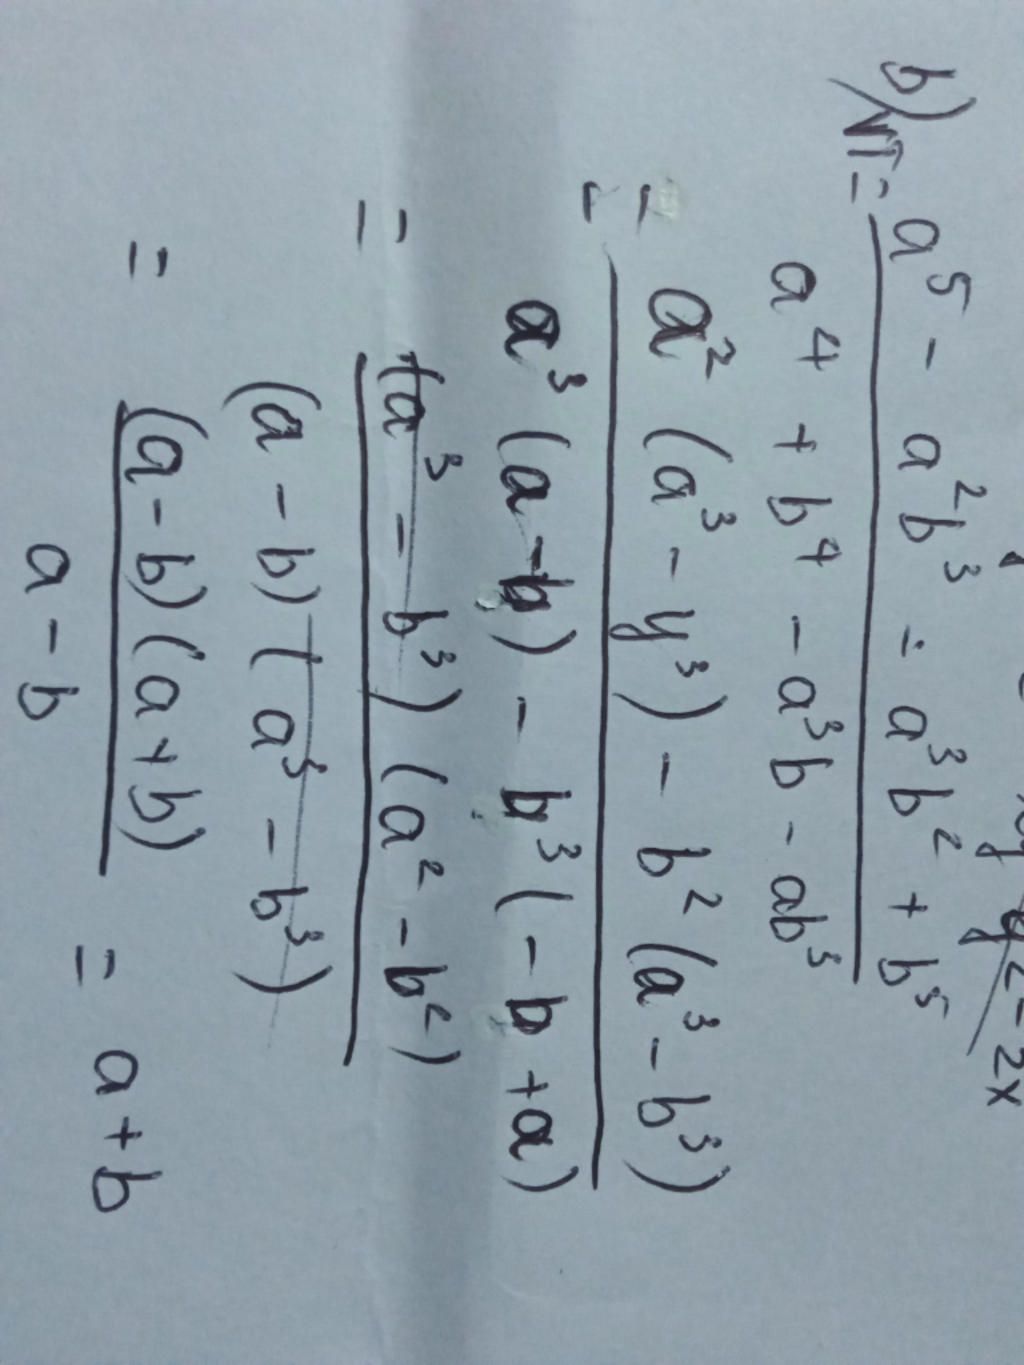 b) VT = a⁵ - a²b³ = a³b² + b⁵
a⁴ + b⁴ - a³b - ab³
= a² (a³ - y³) - b² (a³ - b³)
a³ (a - b) - b³ (-b + a)
= (a³ - b³) (a² - b²)
(a - b) (a³ - b³)
= (a - b) (a + b) = a + b
a - b